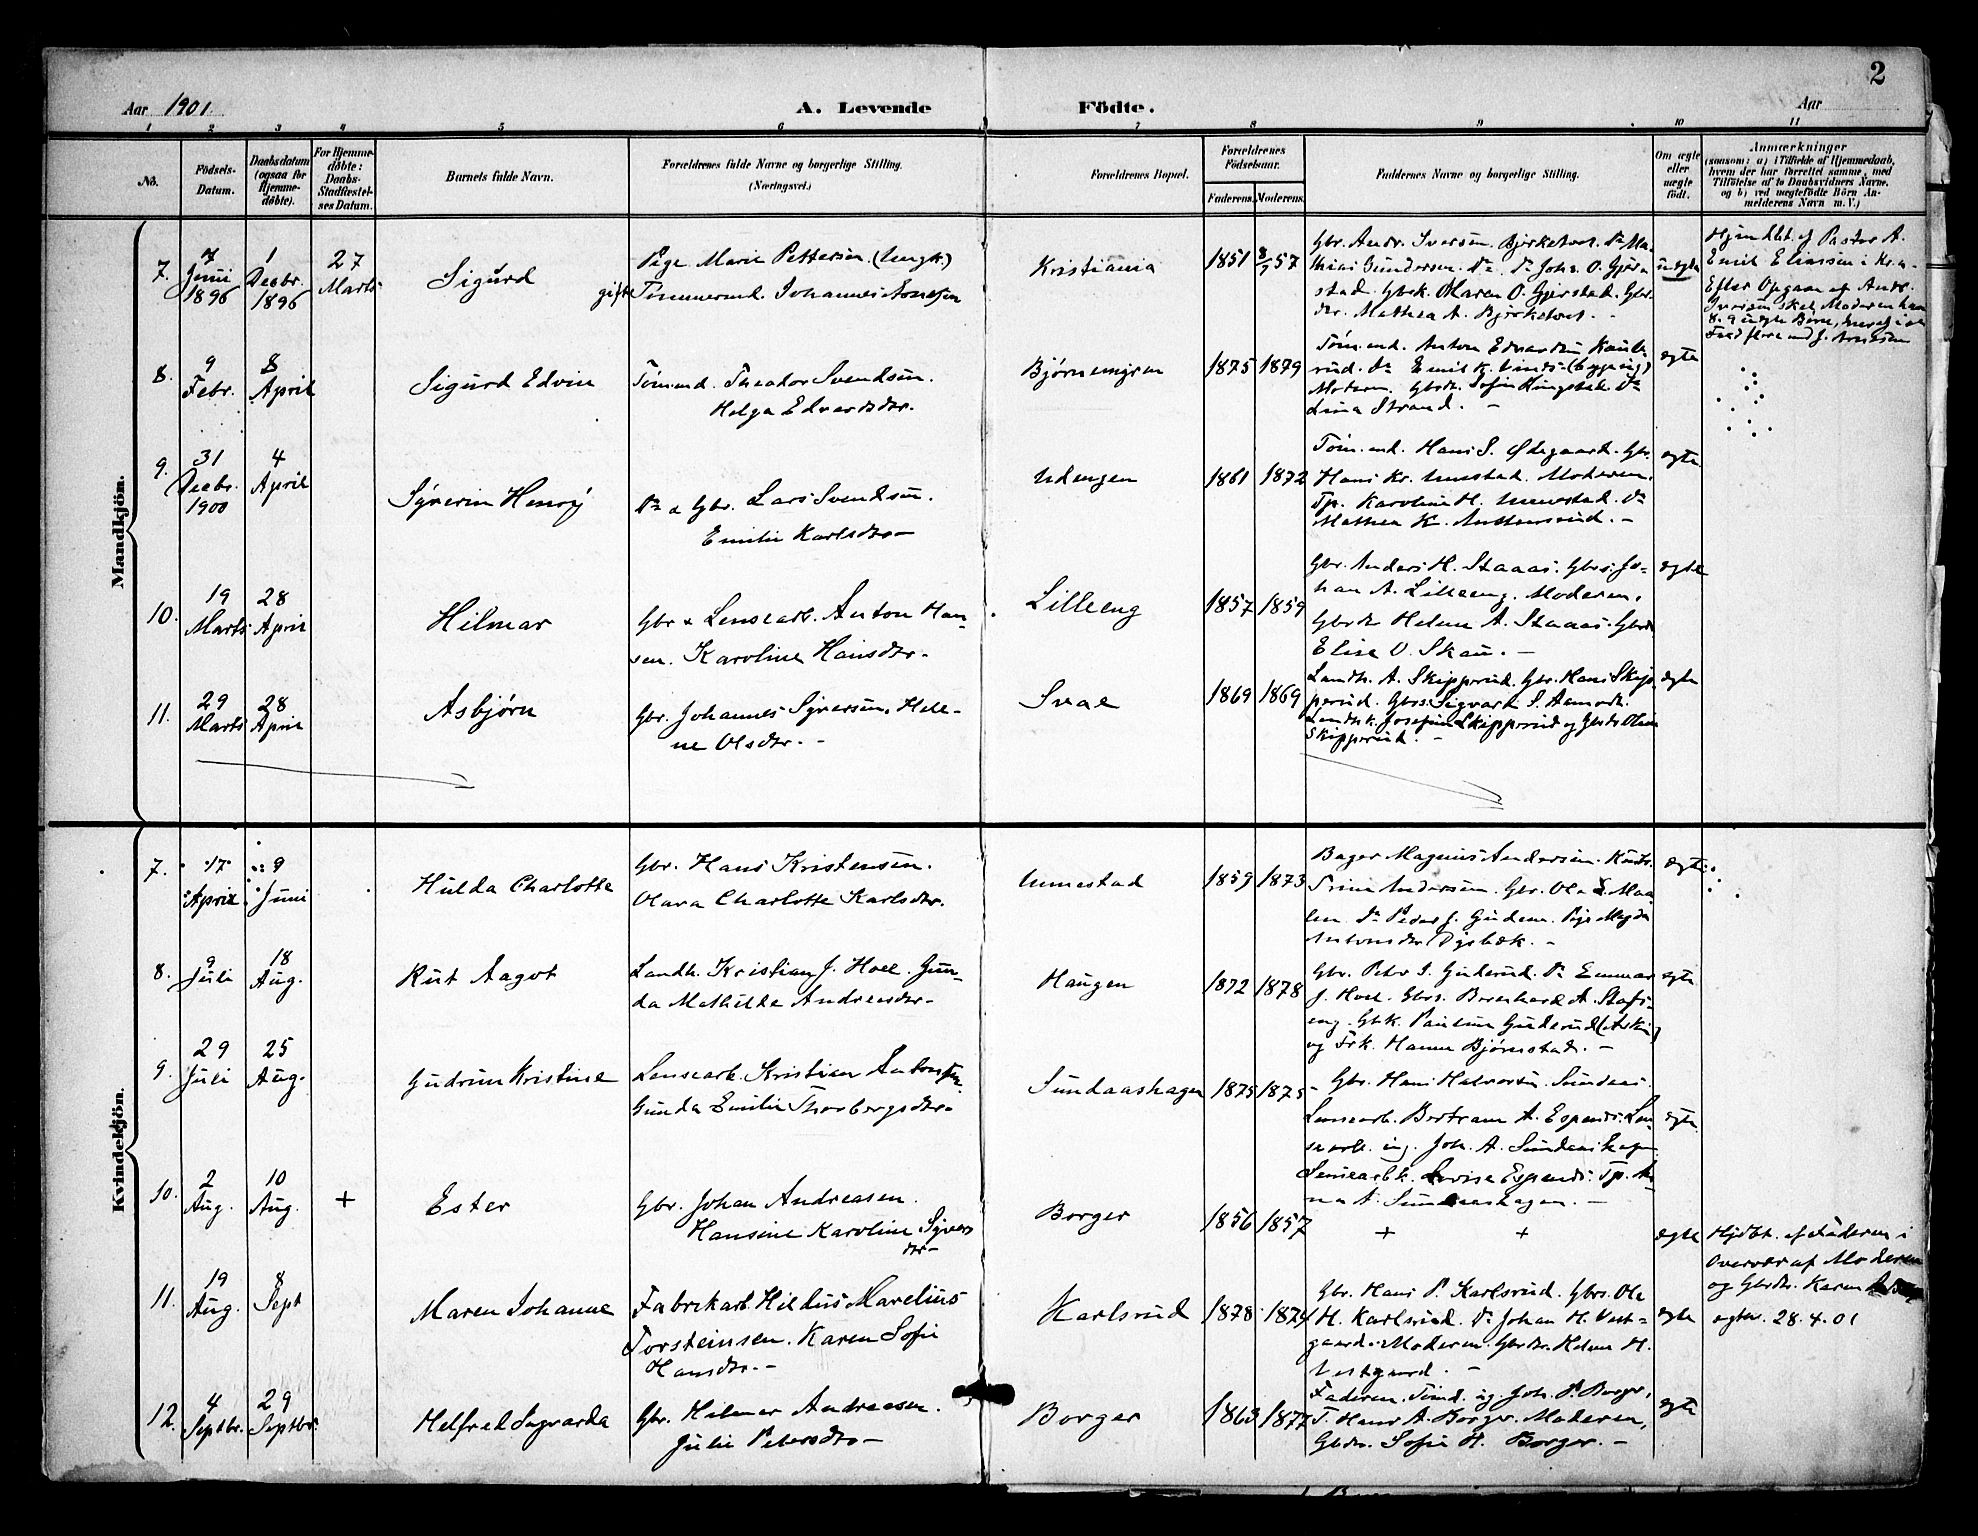 2
Aar 1901. A. Levende Födte. Aar
1 2 3 4 5 6 7 8 9 10 11
No.
Födsels-
Datum.
Daabsdatum
(ogsaa for
Hjemme-
døbte).
For Hjemme-
døbte:
Daabs-
Stadfæstel-
ses Datum.
Barnets fulde Navn.
Forældrenes fulde Navne og borgerlige Stilling.
(Næringsvei.)
Forældrenes Bopæl.
Forældrenes
Fødselsaar.
Faderens. Moderens.
Faddernes Navne og borgerlige Stilling.
Om ægte
eller
uægte
født.
Anmærkninger
(saasom: a) i Tilfælde af Hjemmedaab,
hvem der har forrettet samme, med
Tilføielse af to Daabsvidners Navne,
og b) ved uægtefødte Börn An-
melderens Navn m. V.)
Mandkjön.
7. 7 Juni 1896
1 Decbr. 1896
27 Marts
Sigurd
Pige Marie Pettersen (Ungk.)
gifte Tømmermd. Johannes Arnesen
Kristiania
1851 8/7 57
Gbr. Andr. Iversen Bjerketvet. Do Ma-
thias Gundersen. Do. Do Johs. O. Gjer-
stad. Gbrk. Maren O. Gjerstad. Gbr.
dr. Mathea A. Bjerketvet. -
uægte
Hjemdbt. af Pastor A.
Emil Eliassen i Kr.a.
Efter Opgaav af Andr.
Iversen skal Moderen have
8-9 uægte Børn,
8. 9 Febr.
8 April
Sigurd Edvin
Tømmd. Theodor Svendsen.
Helga Edvardsdtr.
Bjørnemyren
1875 1879
Tømmd. Anton Edvardsen
rud. Do Emil K.
Moderen. Gbrdtr. Sofie Ringstad Do
Lina Strand. -
ægte
9. 31 Decbr. 1900
4 April
Syverin Henry
Do & Gbr. Lars Svendsen.
Emilie Karlsdtr. -
Udengen
1861 1872
Tømmd. Hans S. Ødegaard. Gbr.
Hans Kr. Unnestad. Moderen.
Tp. Karoline H. Unnestad. Do
Mathea K. -
ægte
10. 19 Marts
28 April
Hilmar
Gbr & Lensearb. Anton Han-
sen. Karoline Hansdtr. -
Lilleeng
1857 1859
Gbr. Anders H. Staaas. Gbrs. Jo-
han A. Lilleeng. Moderen,
Gbrdtr Helene A. Staaas. Gbrdtr
Elise O. Skau. -
ægte
11. 29 Marts
28 April
Asbjørn
Gbr. Johannes Syversen. Hele-
ne Olsdtr. -
Svae
1869 1869
Landh. A. Skipperud. Gbr. Hans Skip-
perud. Gbrs. Sigvart S. Aamodt.
Landhk. Josefine Skipperud og Gbrdtr Oline
Skipperud. -
ægte
Kvindekjön.
7. 17 April
9 Juni
Hulda Charlotte
Gbr. Hans Kristensen.
Olava Charlotte Karlsdtr.
Unnestad
1859 1873
Bager Magnus Andersen.
Trine Andersen. Gbr. Ole E. Maa-
len. Do Peder J. Gudem. Pige Magda
Antonsdtr Dysbæk. -
ægte
8. 9 Juli
18 Aug.
Rut Aagot
Landh. Kristian J. Hoel. Gun-
da Mathilde Andreasdtr. -
Haugen
1872 1878
Gbr. Peter S. Guderud. Do Emmar
J. Hoel. Gbrs. Bernhard A. Stafs-
eng. Gbk. Pauline Guderud (Askim)
og Frk. Hanna Bjørnstad. -
ægte
9. 29 Juli
25 Aug.
Gudrun Kristine
Lensearb. Kristian Antonsen
Gunda Emilie Thorbergsdtr. -
Sundaashagen
1875 1875
Gbr. Hans Halvorsen Sundaas.
Lensearb. Bertram A. Espenes. Len-
searb. ug. Joh. A. Sundaashagen
Lensearbk. Lovise Espenes. Tp. An-
na A. Sundaashagen. -
ægte
10. 2 Aug.
10 Aug.
+
Ester
Gbr. Johan Andreasen.
Hansine Karoline Syvers
dtr. -
Borger
1856 1857
+ +
ægte
Hjdbt. af Faderen i
Overvær af Moderen
og Gbrdtr. Karen
28.4.01
11. 19 Aug.
8 Sept
Maren Johanne
Fabrikarb. Hildus Marelius
Torsteinsen. Karen Sofie
Hansdtr. -
Karlsrud
1878 1874
Gbr. Hans P. Karlsrud. Gbrs. Ole
H. Karlsrud. Do Johan H. Vest-
gaard. Moderen. Gbrdtr. Helene H.
Vestgaard. -
ægte
12. 4 Septbr.
29 Septbr.
Helfred Sigvarda
Gbr. Hilmar Andreasen.
Julie Petersdtr -
Borger
1863 1877
Faderen. Tømd. ug. Joh. P. Borger,
T. Hans A. Borger. Moderen,
Gbrdtr. Sofie H. Borger. -
ægte